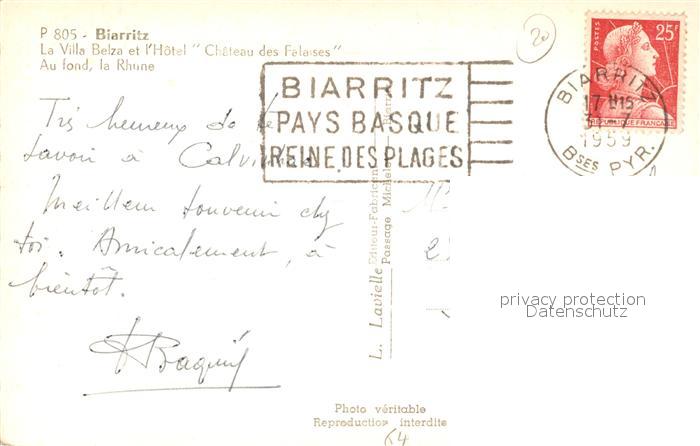 P 805 - Biarritz
La Villa Belza et l'Hôtel "Château des Falaises"
Au fond, la Rhune
20
POSTES
25F
RÉPUBLIQUE FRANÇAISE
BIARRITZ
PAYS BASQUE
REINE DES PLAGES
BIARRITZ
17 H15
1959
BSES PYR.
Très heureux de te
savoir à
Meilleur souvenir chez
toi. Amicalement, à
bientôt.
L. Lavielle Editeur-Fabricant
Passage Michelet Biarritz
privacy protection
Datenschutz
Photo véritable
Reproduction interdite
64